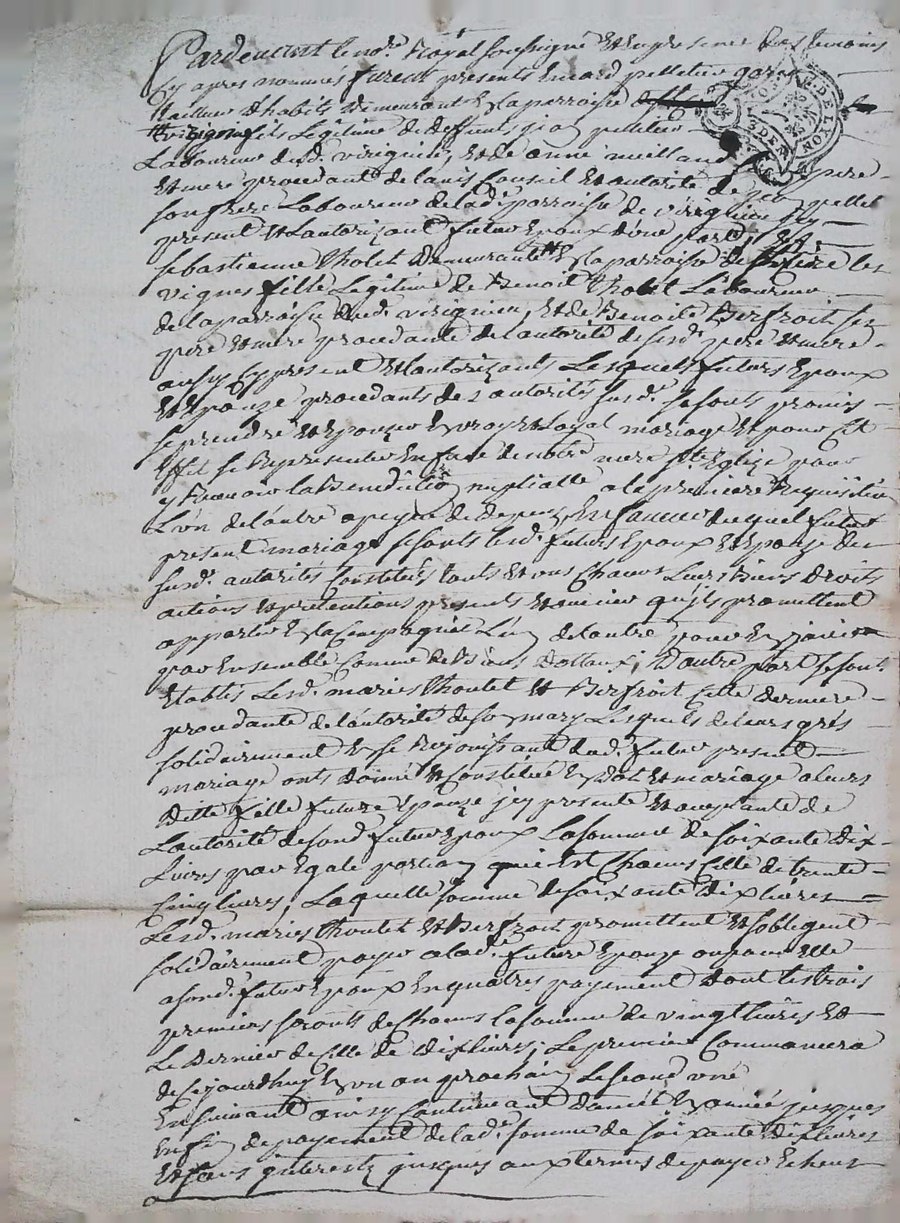 Pardevant le no.re Royal soussigné et en presence des temoins
cy apres nommés furent presents pelletier garçon
tailleur d'habits demeurant en la parroisse
fils Legitime de deffunts jean pelletier
Laboureur dud. virignin, et de anne pere
et mere procedant de l'avis Conseil et autorité de pellet
son frere Laboureur de lad. parroisse de virignin jcy
present et l'autorizant futur epoux d'une part, et
sebastienne tholet demeurante en la parroisse de les
vignes fille Legitime de Benoit tholet Laboureur
de la parroisse dud. virignin, et de Benoite Berfroit ses
pere et mere procedante de l'autorité de sesd. pere et mere
aussy cy present et l'autorizants Lesquels futurs epoux
et epouze procedants des autorités susd. se sonts promis
se prendre et epouzer en vray et loyal mariage et pour cet
effet se Representer en face de notre mere s.te Eglize pour
y Recevoir la Benediction nuptialle a la premiere Requisition
L'un de l'autre a peyne de depens, en faveur duquel futur
present mariage se sonts lesd. futurs epoux et epouze des
susd. autorités Constitués touts et uns Chacuns leurs Biens droits
actions et pretentions presents et avenir qu'ils promettent
apporter en la Compagnie L'un de l'autre pour en jouir
par ensemble Comme de Biens dottaux; D'autre part se sont
etablis Lesd. maries tholet et Berfroit cette derniere
procedante de l'autorité de son mary Lesquels de leurs grés
solidairement et se Rejouissant dud. futur present
mariage onts donné et Constitué en dot et mariage a leurs
ditte fille future epouze jcy presente et acceptante de
L'autorité de sond. futur epoux La somme de soixante dix
Livres par egale portion qui est Chacuns celle de trente
cinq livres, Laquelle somme de soixante dix livres
Lesd. maries tholet et Berfroit promettent et s'obligent
solidairement payer a lad. future epouze ou pour elle
a sond. futur epoux en quatres payement dont les trois
premiers seronts de Chacuns la somme de vingt livres et
Le dernier de celle de dix livres; Le premier Commancera
de ce jourdhuy en un an prochain Le second une
Ensuivant ainsy Continuant d'année en année jusques
en fin de payement de lad. somme de soixante dix livres
et sans interests jusques aux termes de payer Echeus